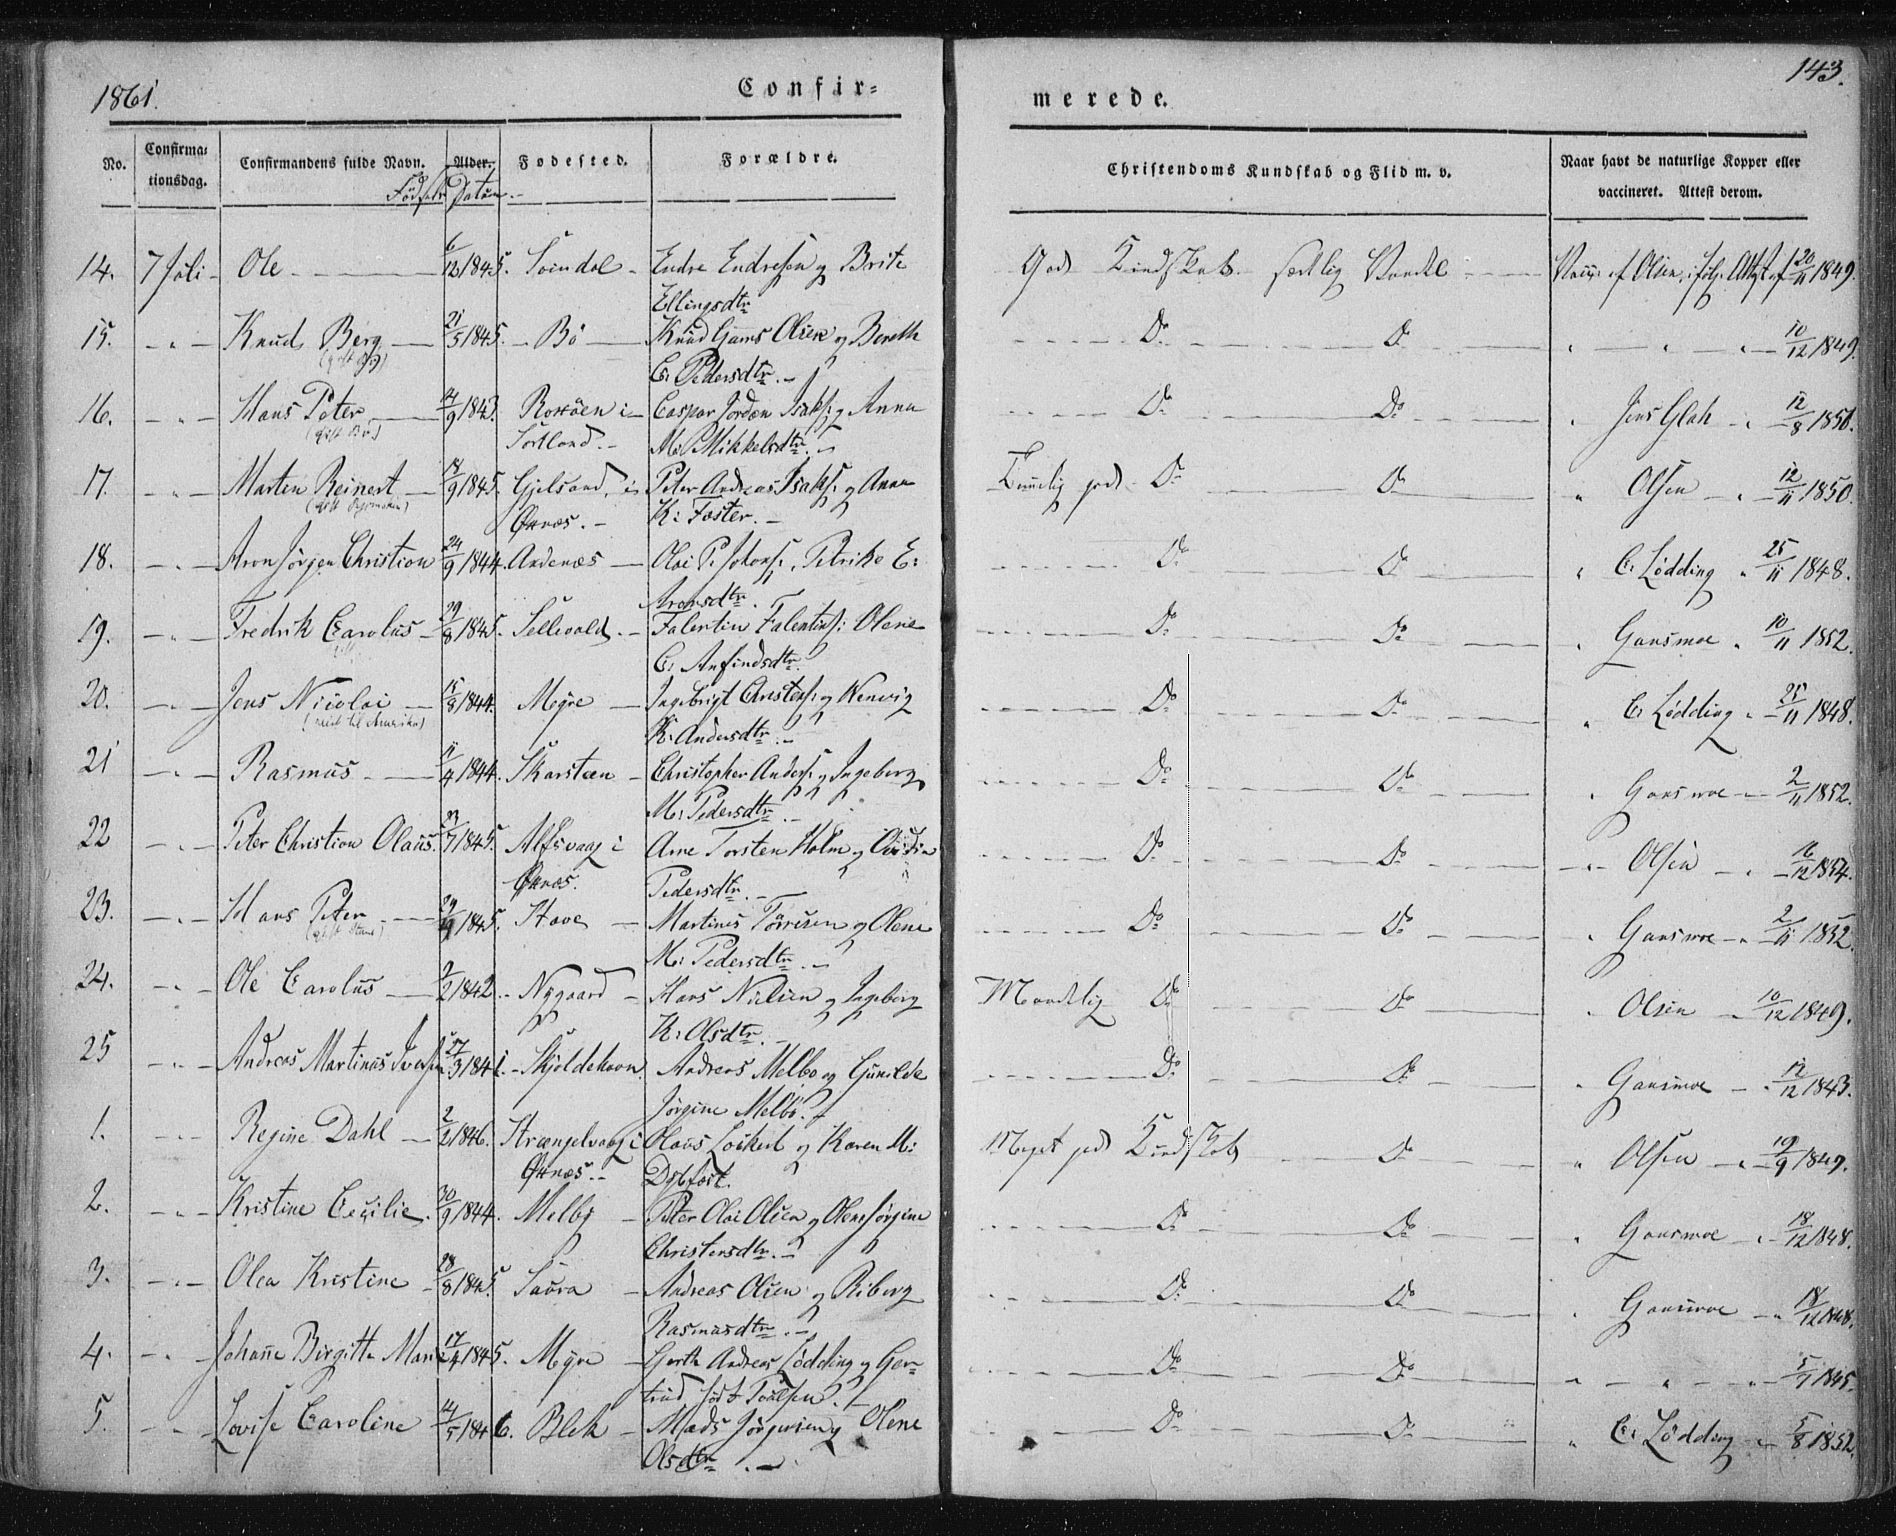 1861.
Confir=
merede.
143.
No.
Confirma=
tionsdag.
Confirmandens fulde Navn.
Alder.
Fødsels Datum.
Fødested.
Forældre.
Christendoms Kundskab og Flid m. v.
Naar havt de naturlige Kopper eller
vaccineret. Attest derom.
14. 7 Juli - Ole 6/12 1845. Endre Endresen og Brite God Kundskab sædlig Vandel 20/11 1849.
Ellingsdtr
15. - " - Knud Berg 21/5 1845. - Bö - Knud Olsen og Bereth Do Do " - " - " 10/12 1849.
Pedersdtr. -
16. - " - Hans Peter 9 1843. i Caspar Jordan Isaks. og Anna Do Do " Jens 12/8 1850.
(gift Bö)
Sortland. - M. Mikkelsdtr. -
17. - " - Marten Reinert 18/9 1845. i Peter Andreas Isaks. og Anna god Do Do " Olsen - " 12/11 1850.
Öxnæs. - K: Foster. -
18. - " - Aron Jörgen Christian 24/9 1844. Andenæs - Oloi P. Johans. Petrike E: Do Do " C. Lödding " 25/11 1848.
Aronsdtr.
19. - " - Fredrik Carolus 29/8 1845. Sellevold. - Falentin Falentins: Olene Do Do " Gansmoe " 10/11 1852.
C: Anfindsdtr.
20. - " - Jens Nicolai 15/8 1844. Myre - Ingebrigt Christens. og Do Do " C. Lödding " 25/11 1848.
(reist til Amerika)
K. Andersdtr. -
21 - " - Rasmus 11/4 1844. Skarsteen - Christopher Anders. og Ingeborg Do Do " Gansmoe - 2/11 1852.
M: Pedersdtr. -
22 - " - Peter Christian Olaus. 23/7 1845. Alfsvaag i Arne Torsten Holm og Do Do " Olsen " 16/12 1854.
Öxnæs. Pedersdtr. -
23. - " - Hans Peter 29 1845. Stave - Martines Törresen og Olene Do Do " Gansmoe - " 2/11 1852.
(gift Stave)
M: Pedersdtr. -
24. - " - Ole Carolus 2/2 1842. - Nygaard - Hans Nielsen og Ingeborg Maadelig Do Do " Olsen " 10/12 1849.
K: Olsdtr. -
25 - " - Andreas Martinus Iversen 27/3 1841. - Skjoldehavn. Andreas Melbo og Gunilde Do Do " Gansmoe - " 12/12 1843.
Jörgine Melbö. -
1. - " - Regine Dahl 2/2 1846. Strængelvaag i Olaus Lockert og Karen M: Meget god Kundskab Do " Olsen - " 19/9 1849.
Öxnæs. - Dybfest.
2. - " - Kristine Cecilie. 30/9 1844. Melby - Peter Oloi Olsen og Olene Jörgine Do Do " Gansmoe - " 18/12 1848.
Christensdtr. -
3. - " - Olea Kristine 28/8 1845. Saura - Andreas Olsen og Riborg Do Do " Gansmoe - " 18/12 1848.
Rasmusdtr. -
4. - " - Johanne Birgitte Marie 17/4 1845. Myre - Andreas Lödding og Ger- Do Do " - " - " 5/7 1845.
trud född Poulsen. -
5. - " - Lovise Caroline 14/5 1846. Blek - Mads Jörgensen og Olene Do Do " C. Lödding - " 5/8 1852.
Olsdtr. -